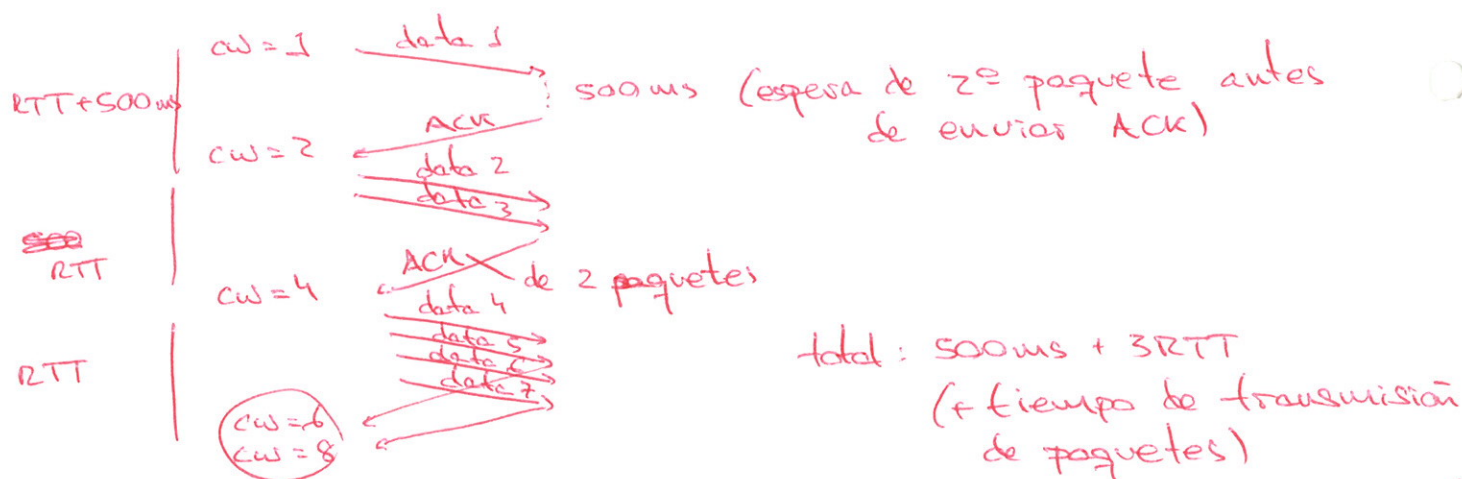 cw = 1
data 1
RTT + 500 ms
500 ms (espera de 2º paquete antes
de enviar ACK)
ACK
cw = 2
data 2
data 3
RTT
ACK de 2 paquetes
cw = 4
data 4
data 5
data 6
data 7
RTT
cw = 6
cw = 8
total: 500 ms + 3RTT
(+ tiempo de transmisión
de paquetes)